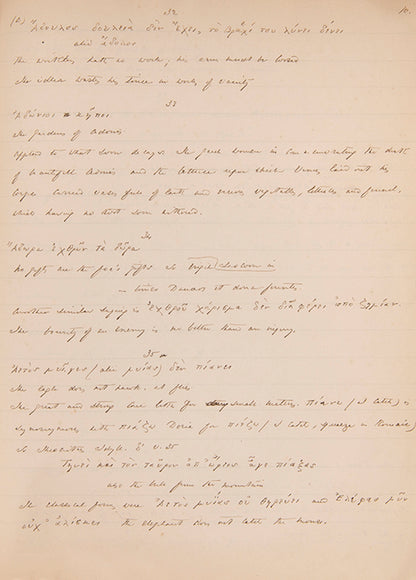 32
10.
Ἄδουλος δουλειὰ δὲν ἔχει, τὸ βρακί του λύνει δένει
The wretch hath no work; his
The idler wastes his time in works of vanity
33
Ἀδώνιοι κῆποι
The gardens of Adonis
Applied to what soon decays. The Greek women in commemorating the death
of beautiful Adonis and the lettuce upon which Venus laid out his
corpse carried vases full of earth and various vegetables, lettuces and fennel,
which having no root soon withered.
34
Ἄδωρα ἐχθρῶν τὰ δῶρα
No gifts are the foe's gifts. So
timeo Danaos et dona ferentes
Another similar saying is ἐχθροῦ χάρισμα δὲν διαφέρει ἀπὸ ζημίαν.
The bounty of an enemy is no better than an injury.
35
Ἀετὸς μυῖγες (also μυίας) δὲν πιάνει
The eagle does not hawk at flies
The great and strong care little for small matters. πιάνω (I catch) is
synonymous with πιάζω Doric for πιέζω (I catch, squeeze in Romaic)
So Theocritus Idyll. Δ' v. 35
Τηνεὶ καὶ τὸν ταῦρον ἀπ' ὤρεος ἆγε πιάξας
the bull from the mountain
The classical forms were Ἀετὸς μυίας οὐ θηρεύει and Ἐλέφας μῦν
οὐχ ἁλίσκει the elephant does not catch the mouse.